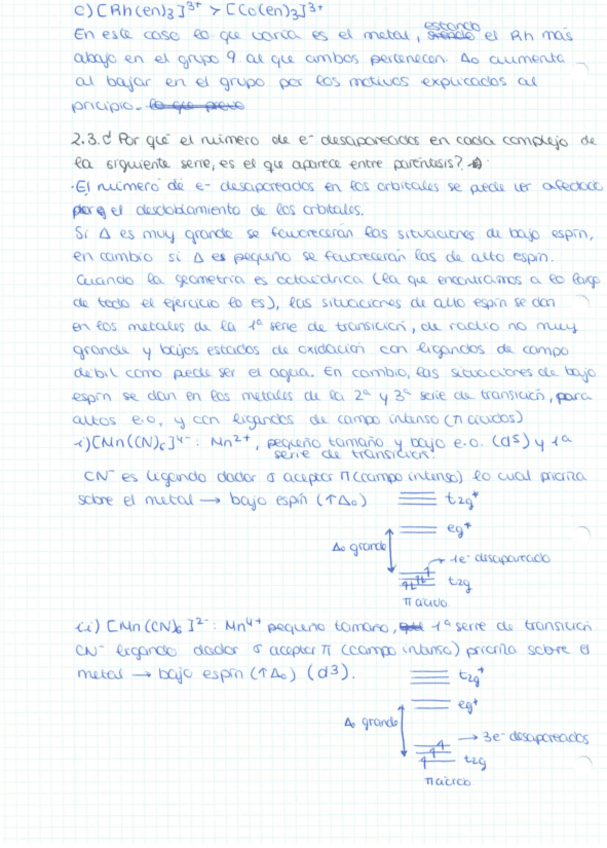 c) [Rh(en)3]3+ > [Co(en)3]3+
En este caso lo que varía es el metal, estando el Rh más
abajo en el grupo 9 al que ambos pertenecen. Δo aumenta
al bajar en el grupo por los motivos explicados al
pricipio.
2.3. ¿Por qué el número de e- desapareados en cada complejo de
la siguiente serie, es el que aparece entre paréntesis?
·El número de e- desapareados en los orbitales se puede ver afectado
por el desdoblamiento de los orbitales.
Si Δ es muy grande se favorecerán las situaciones de bajo espín,
en cambio si Δ es pequeño se favorecerán las de alto espín.
Cuando la geometría es octaédrica (la que encontramos a lo largo
de todo el ejercicio lo es), las situaciones de alto espín se dan
en los metales de la 1ª serie de transición, de radio no muy
grande y bajos estados de oxidación con ligandos de campo
débil como puede ser el agua. En cambio, las situaciones de bajo
espín se dan en los metales de la 2ª y 3ª serie de transición, para
altos e.o, y con ligandos de campo intenso (π ácidos)
i) [Mn(CN)6]4-: Mn2+, pequeño tamaño y bajo e.o. (d5) y 1ª
serie de transición
CN- es ligando dador σ aceptor π (campo intenso) lo cual prioriza
sobre el metal → bajo espín (↑Δo)
t2g*
eg*
Δo grande
1e- desapareado
t2g
π ácido
ii) [Mn(CN)6]2-: Mn4+ pequeño tamaño, 1ª serie de transición
CN- ligando dador σ aceptor π (campo intenso) prioriza sobre el
metal → bajo espín (↑Δo) (d3).
t2g*
eg*
Δo grande
→ 3e- desapareados
t2g
π ácido